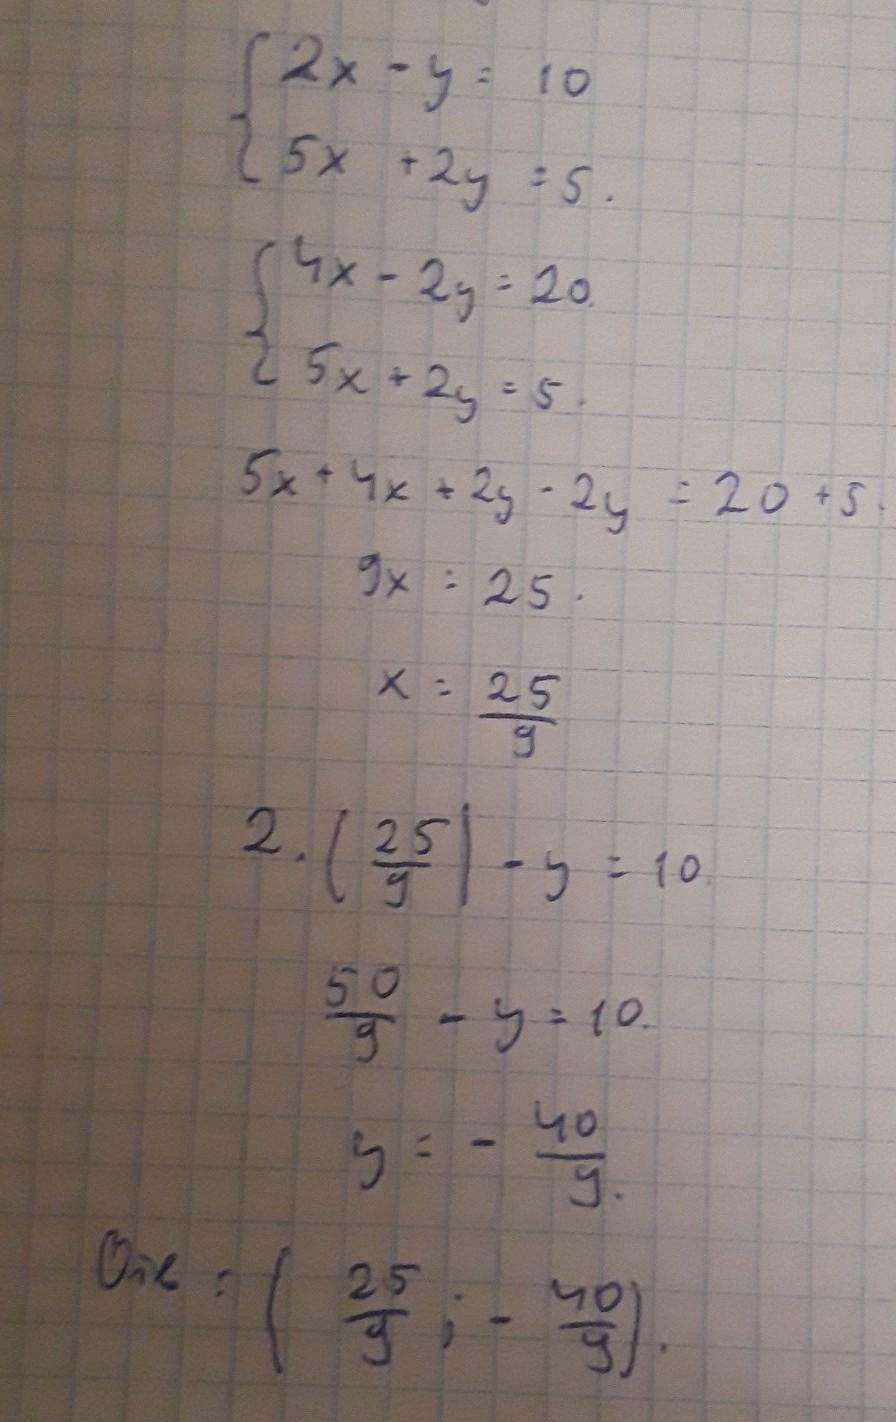 2x - y = 10
5x + 2y = 5.
4x - 2y = 20.
5x + 2y = 5.
5x + 4x + 2y - 2y = 20 + 5.
9x = 25.
x = 25/9
2. (25/9) - y = 10.
50/9 - y = 10.
y = - 40/9.
: (25/9 ; - 40/9).